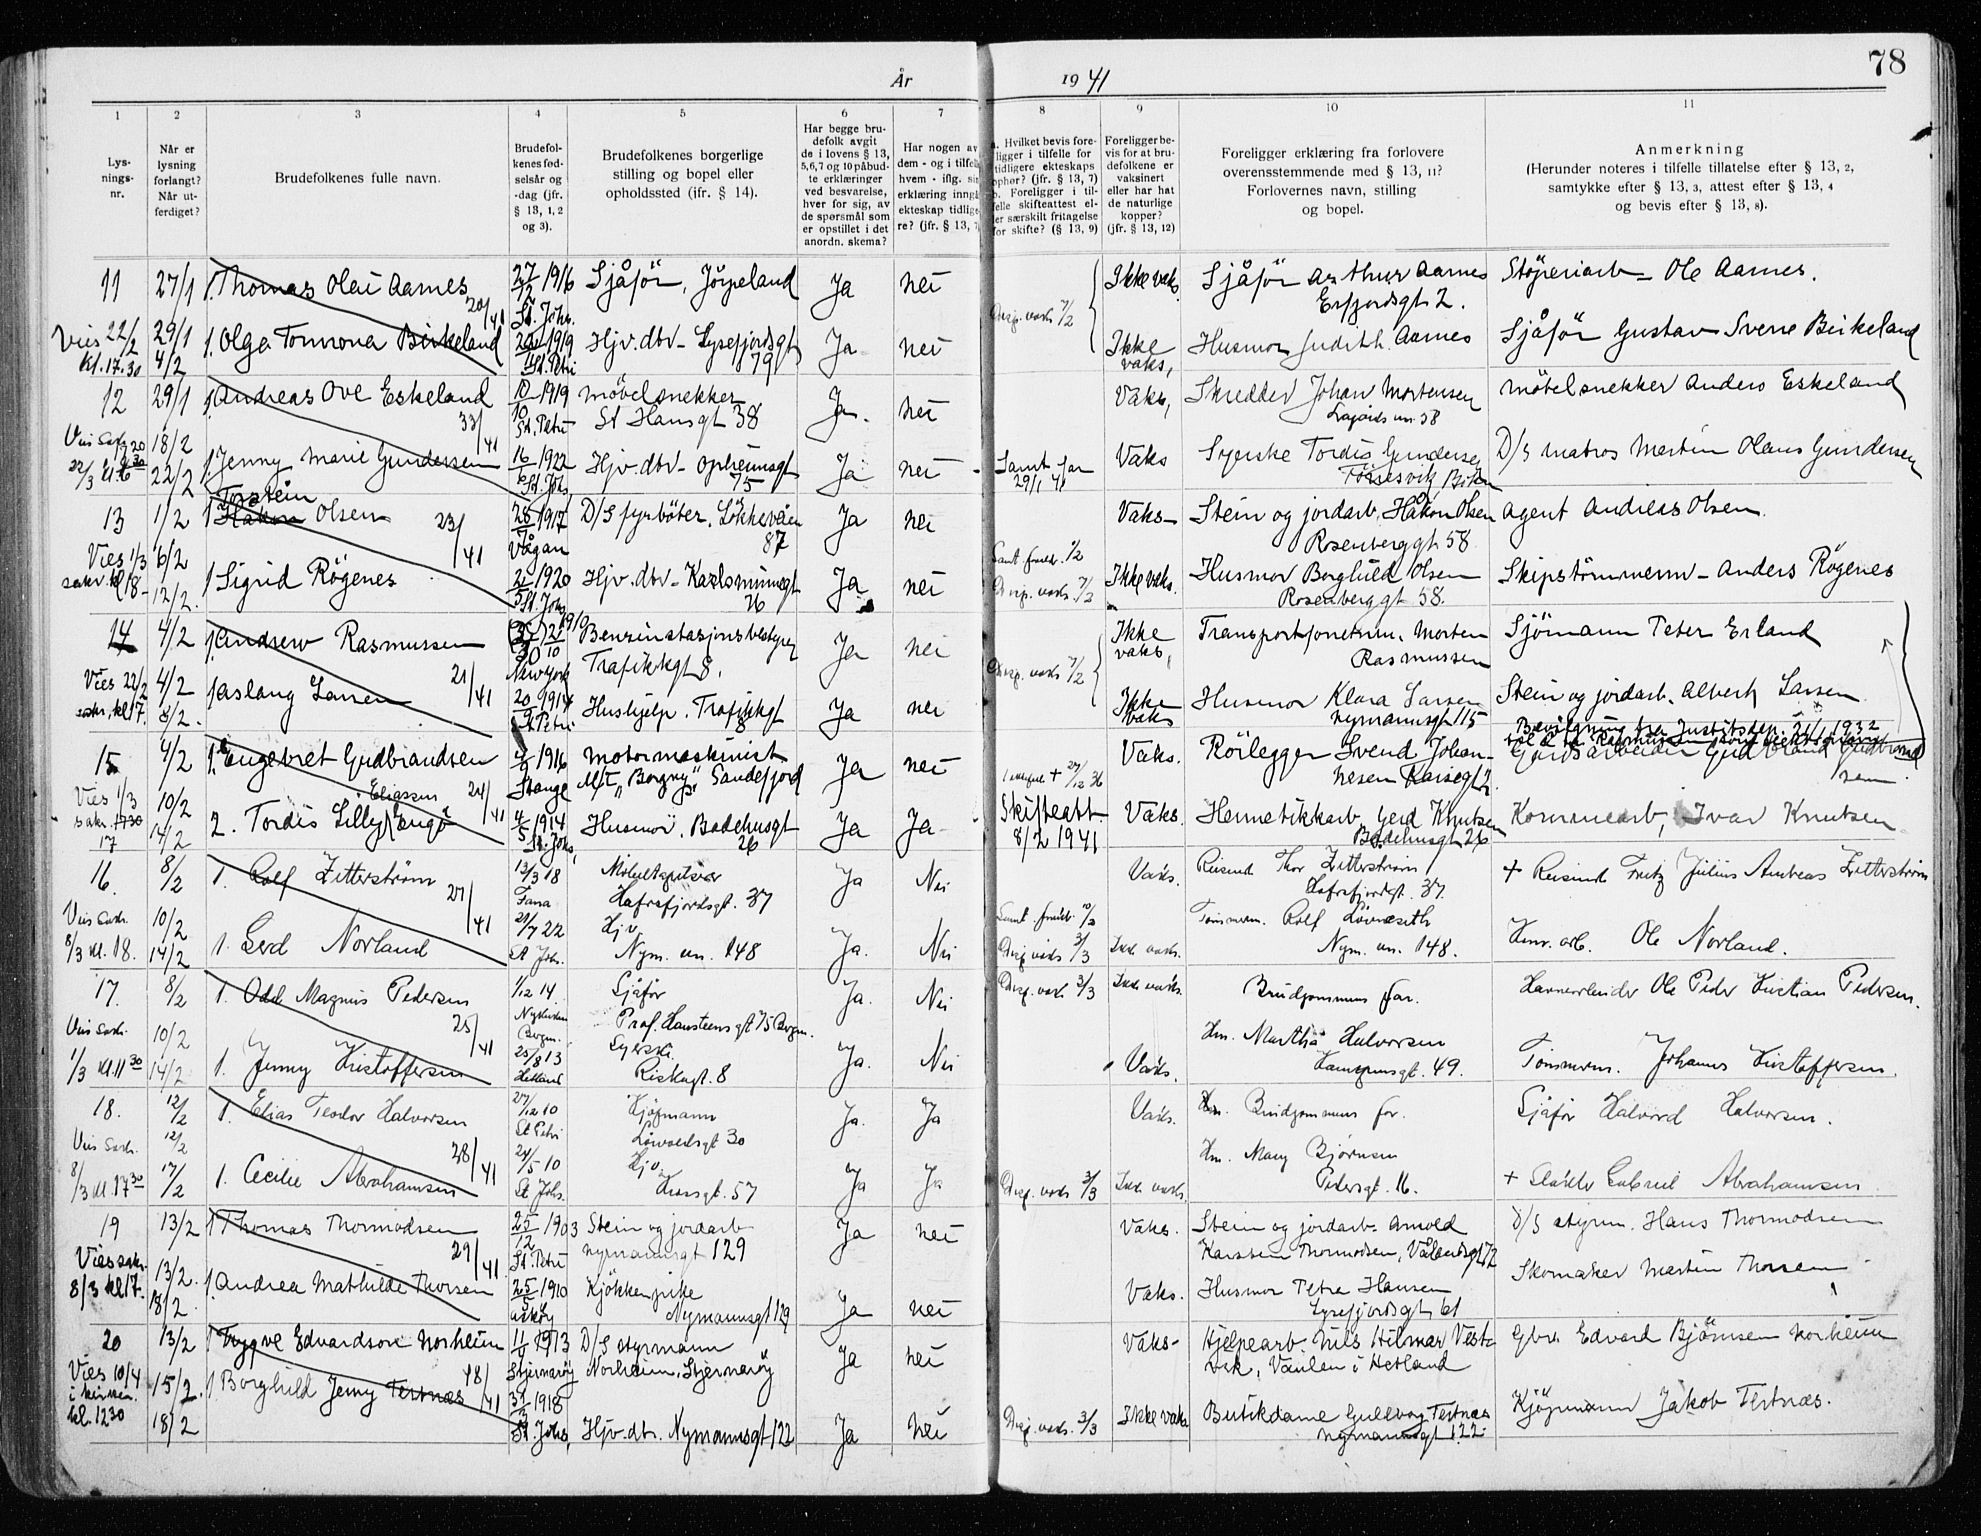 År 1941
78
1 2 3 4 5 6 7 8 9 10 11
Lys-
nings-
nr.
Når er
lysning
forlangt?
Når ut-
ferdiget?
Brudefolkenes fulle navn.
Brudefol-
kenes fød-
selsår og
-dag (jfr.
§ 13, 1, 2
og 3).
Brudefolkenes borgerlige
stilling og bopel eller
opholdssted (ifr. § 14).
Har begge bru-
defolk avgit
de i lovens § 13,
5,6,7 og 10 påbud-
te erklæringer
ved besvarelse,
hver for sig, av
de spørsmål som
er opstillet i det
anordn. skema?
Har nogen av
dem - og i tilfelle
hvem - iflg. sin
erklæring inngå
ekteskap tidlige-
re? (jfr. § 13, 7
a. Hvilket bevis fore-
ligger i tilfelle for
tidligere ekteskaps
ophør? (jfr. § 13, 7)
b. Foreligger i til-
felle skifteattest el-
ler særskilt fritagelse
for skifte? (§ 13, 9)
Foreligger be-
vis for at bru-
defolkene er
vaksinert
eller har hat
de naturlige
kopper?
(jfr. § 13, 12)
Foreligger erklæring fra forlovere
overensstemmende med § 13, 11?
Forlovernes navn, stilling
og bopel.
Anmerkning
(Herunder noteres i tilfelle tillatelse efter § 13, 2,
samtykke efter § 13, 3, attest efter § 13, 4
og bevis efter § 13, 8).
11 27/1 1. Thomas Olai Aarnes 27/12 1916 Sjåfør, Jørpeland Ja nei Ikke vaks. Sjåfør Arthur Aarnes Støperiarb. Ole Aarnes.
20/41 St. Johs. Disp. vaks. 7/2 Erfjordsgt 2.
Vies 22/2 29/1 1. Olga Tomona Birkeland 1919 Hjv. dtr. Lysefjordsgt Ja nei Ikke Husmor Judith Aarnes Sjåfør Gustav Svene Birkeland
kl. 17.30 4/2 St. Petri 79 vaks,
12 29/1 1. Andreas Ove Eskeland 10/10 1919 møbelsnekker Ja. nei Vaks, Skredder Johan Mortensen møbelsnekker Anders Eskeland
33/41 St. Petri St Hansgt 38
Vies Sakr. 18/2
22/3 22/2 1. Jenny Marie Gundersen 16/6 1922 Hjv. dtr. Opheimsgt Ja nei Samt. far Vaks Syerske Tordis Gundersen D/S matros Martin Olaus Gundersen
St. Johs 75 29/1 41
13 1/2 1 Håkon Torstein Olsen 23/41 28/ 1917 D/S fyrbøter. Løkkeveien Ja nei Vaks- Stein og jordarb. Håkon Olsen agent Andreas Olsen.
Vågan 87 Rosenberggt 58
Vies 1/3 6/2 1 Sigrid Røgenes 2/5 1920 Hjv. dtr. Karlsminnegt Ja nei Disp. vaks. 7/2 Ikke vaks. Husmor Borghild Olsen Skipstømmerm. Anders Røgenes
sakr. kl 18- 12/2. St. Johs 76 Rosenberggt 58.
14 4/2 1. Andrew Rasmussen 1910 Benzinstasjonsbestyrer Ja nei Ikke Transportformann. Morten Sjømann Peter Erland
New York Trafikkgt 8. Disp. vaks 7/2 vaks, Rasmussen
Vies 22/2 4/2 1 Aslaug Larsen 21/41 20/9 1914 Hushjelp. Trafikkgt Ja nei Ikke Husmor Klara Larsen Stein og jordarb. Albert Larsen
sakr. kl 17. 8/2. St. Petri 8 vaks nymannsgt 115
Bevilgning fra Justitsdep. 21/1 1932
15 4/2 1. Engebret Gudbrandsen 4/ 1916 motormaskinist Ja nei Vaks. Rørlegger Svend Johan- Gårdsarbeider Gudbrand Gudbrand
24/41 Stange M/T "Borgny" Sandefjord + 27/12 36 nesen Karsegt 2. sen
Vies 1/3 10/2 2. Tordis Lilly Eliassen Eugø 4/5 1914 Husmor, Badehusgt Ja Ja Skifteatt Vaks. Hermetikkarb. Gerd Knutsen Kommunearb. Ivar Knutsen
sakr. 1730 17 14/2 St. Johs. 26 8/2 1941 Badehusgt 26
16. 8/2 1. Rolf Zitterstrøm 13/3 18 Møbeltapetserer Ja Nei Vaks. Reisende Thor Zitterstrøm + Reisende Fritz Julius Andreas Zitterstrøm
27/41 Fana Hafrsfjordsgt. 37 Hafrsfjordsgt. 37.
Vies Sakr. 10/2 1. Gerd Norland 21/7 22 Hjv Ja. Nei Samt. foreld. 10/2 Tømmerm. Rolf Løvaseth Hmv. arb. Ole Norland.
8/3 kl. 18. 14/2 St Johs. Nym. vn. 148 Disp. vaks 3/3 Ikke vaks. Nym. vn. 148.
17. 8/2 1. Odd Magnus Pedersen 1/12 14. Sjåfør Ja. Nei Disp. vaks 3/3 Ikke vaks. Brudgommens far. Havnearbeider Ole Peder Kristian Pedersen.
25/41 Nykirken Bergn. Prof. Hansteensgt 75 Bergn.
Vies Sakr. 10/2 1. Jenny Kristoffersen 25/8 13 Syerske Ja. Nei Vaks. Hm. Martha Halvorsen Tømmerm. Johannes Kristoffersen.
1/3 kl. 11 30 14/2 Hetland Riskagt. 8 Kampensgt. 49.
18. 12/2 1. Elias Teodor Halvorsen 27/12 10 Kjøpmann Ja. Ja Vaks. Brudgommens far. Sjåfør Halvard Halvorsen.
28/41 St Petri Løvoldsgt 30
Vies Sakr. 12/2 1. Cecilie Abrahamsen 24/5 10 Hjv. Ja Ja Hm. Mary Bjørnsen
8/3 kl. 17 30 17/2 St Johs. Korsgt. 57 Disp. vaks 3/3 Ikke vaks. Pedersgt. 16. + Gabriel Abrahamsen
19 13/2 1 Thomas Thormodsen 25/12 1903 Stein og jordarb Ja nei Vaks. Stein og jordarb. Arnold D/S styrm. Hans Thormodsen
29/41 St. Petri nymannsgt 129 Karsten Thormodsen, Vålandsgt 72
Vies sakr. 13/2. 1. Andrea Mathilde Thorsen 25/5 1910 Kjøkkenpike Ja nei Vaks. Husmor Petra Hansen Skomaker Martin Thorsen
8/3 kl 17. 18/2. Askøy Nymannsgt 129 Lysefjordsgt 61
20 13/2 1 Trygve Edvardson Norheim 11/ 1913 D/S styrmann Ja nei Vaks- Hjelpearb. Nils Hilmar Vest- Gbr. Edvard Bjørnsen Norheim
48/41 Stjernarøy Norheim, Stjernarøy vik, Vaulen i Hetland
Vies 10/4 15/2. 1. Borghild Jenny Tertnæs 3/ 1918 Butikdame Gullborg Tertnæs Kjøpmann Jakob Tertnæs.
i kirken. kl. 1230 18/2 St. Johs, Hjv. dtr. Nymannsgt 122 Ja nei Disp. vaks. 3/3 Ikke vaks nymannsgt 122.